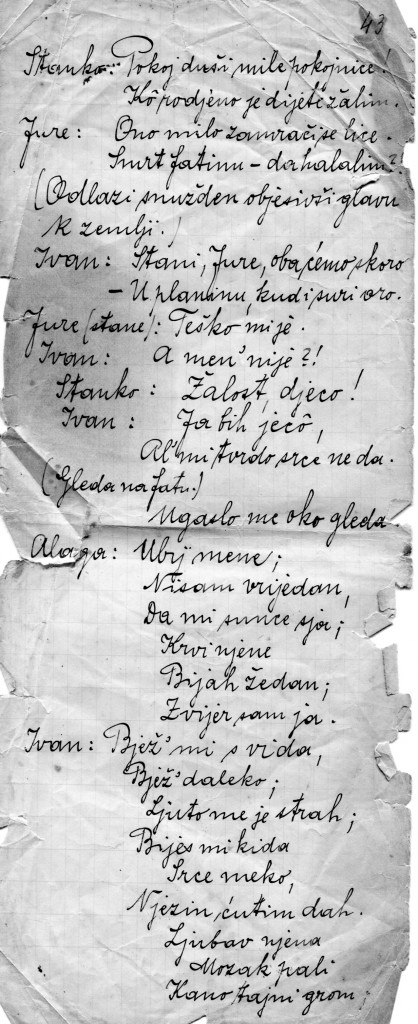 43
Stanko: Pokoj duši mile pokojnice!
Kô rodjeno je dijete žalim.
Jure: Ono milo zamrači se lice.
Smrt fatinu – da halalim?!
(Odlazi snužden objesivši glavu
k zemlji.)
Ivan: Stani, Jure, oba ćemo skoro
– U planinu, kudi suri oro.
Jure (stane): Teško mi je.
Ivan: A men' nije?!
Stanko: Žalost, djeco!
Ivan: Ja bih jecô,
Al' mi tvrdo srce ne da.
(Gleda na fatu.)
Ugaslo me oko gleda.
Alaga: Ubij mene;
Nisam vrijedan,
Da mi sunce sja;
Krvi njene
Bijah žedan;
Zvijer sam ja.
Ivan: Bjež' mi s vida,
Bjež' daleko;
Ljuto me je strah;
Bijes mi kida
Srce meko,
Njezin ćutim dah.
Ljubav njena
Mozak pali
Kano tajni grom;